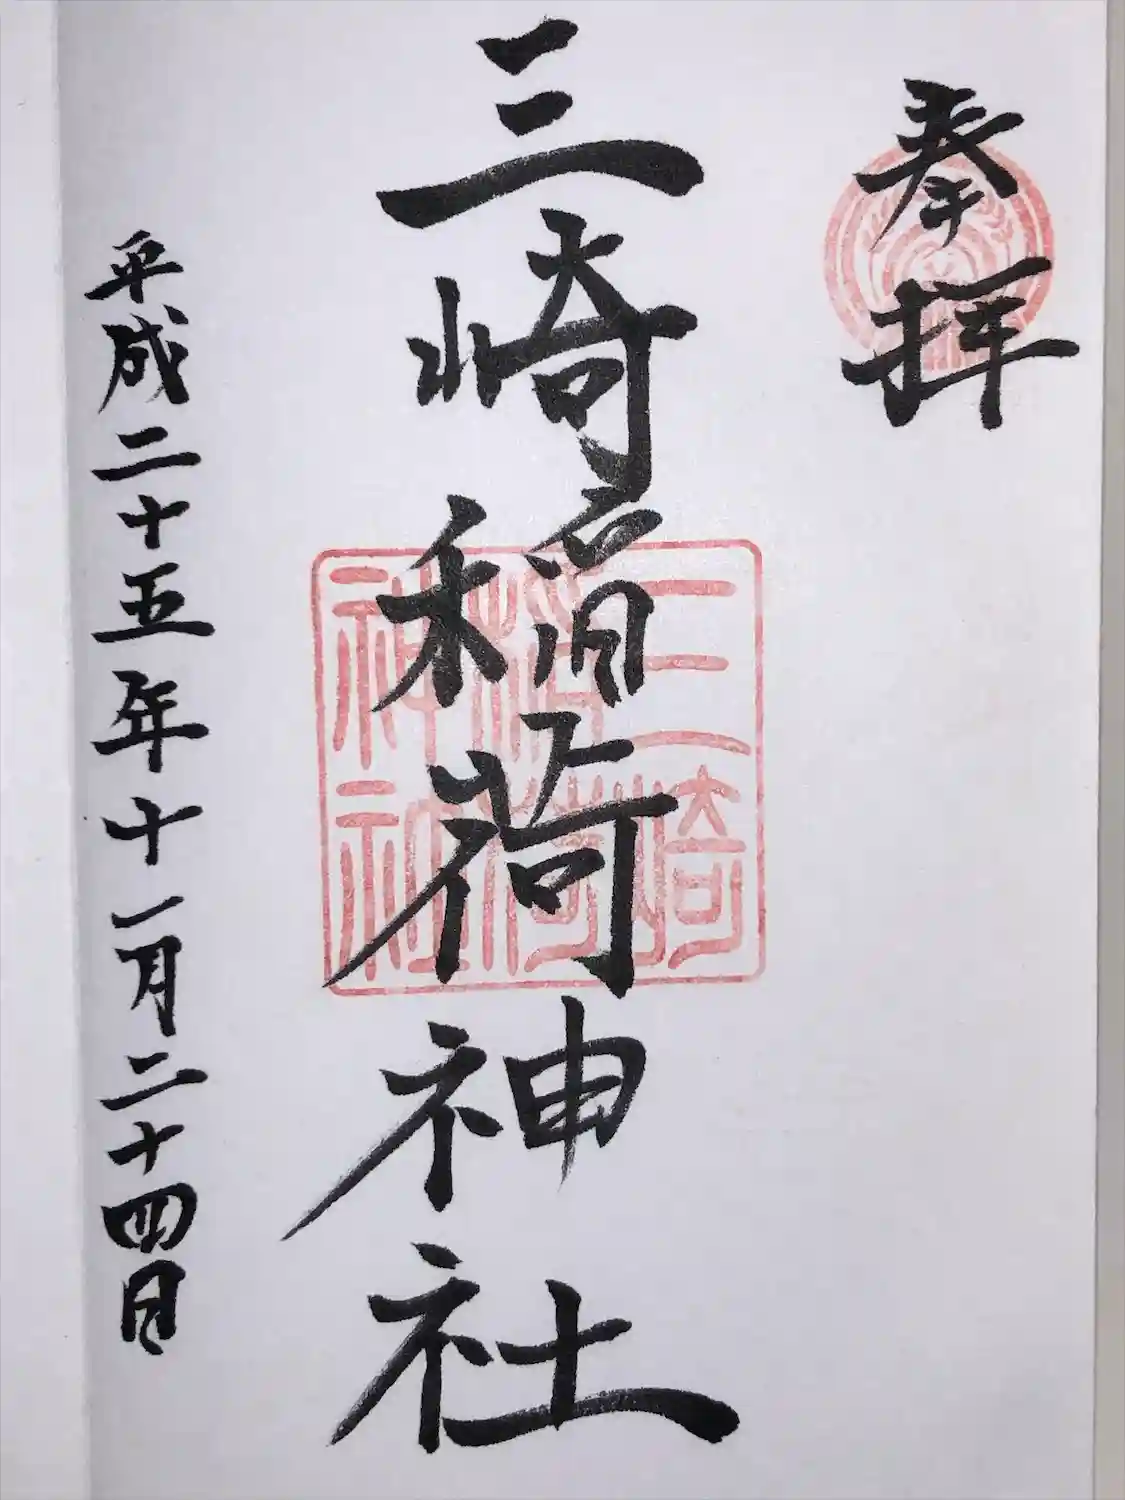 奉拝
三崎稲荷神社
三崎
稲荷
神社
平成二十五年十一月二十四日